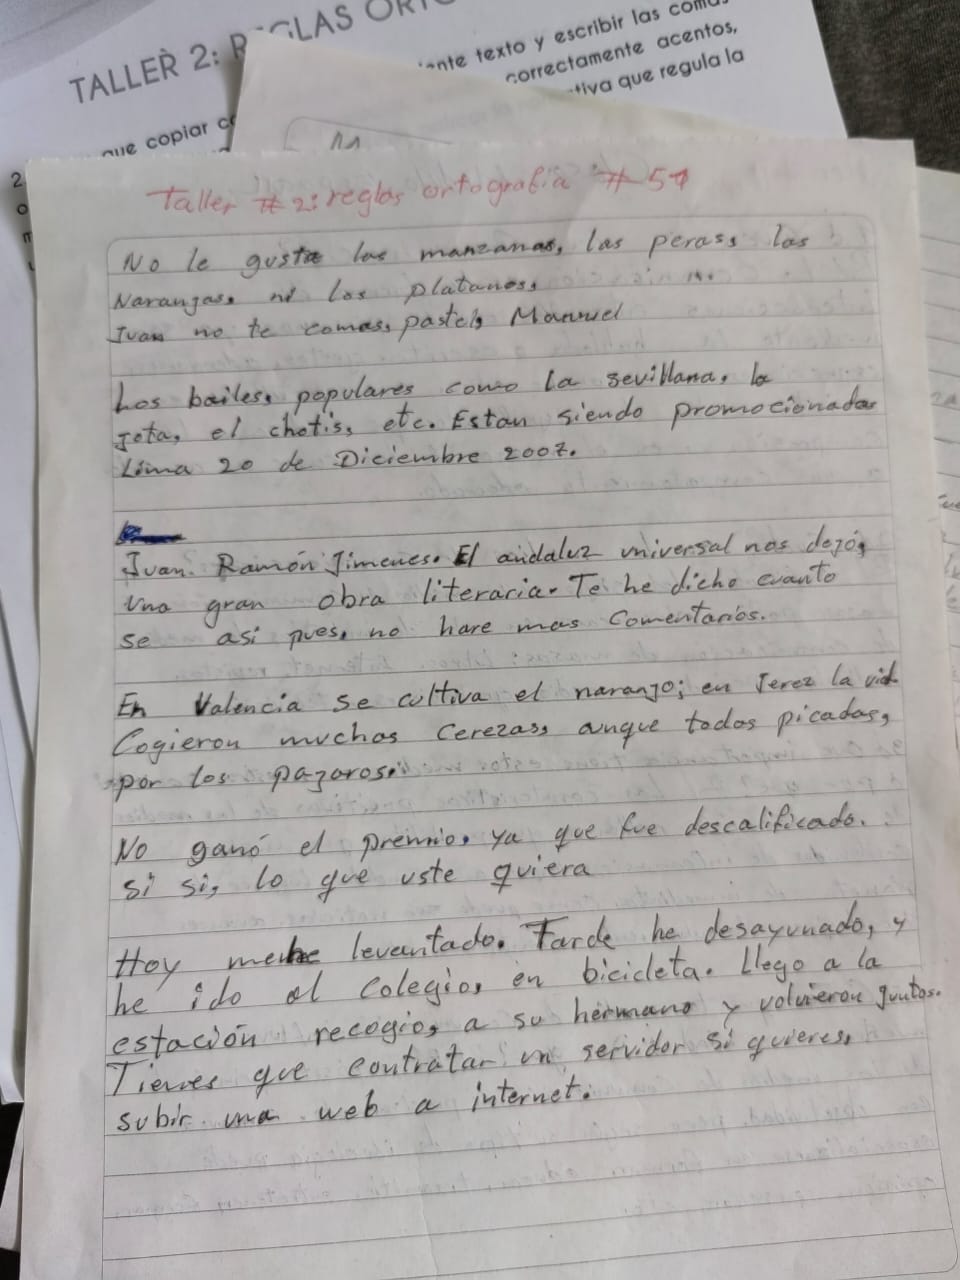 TALLER 2: REGLAS ORTO
ente texto y escribir las comas
correctamente acentos,
tiva que regula la
que copiar co
2
Taller #2: reglas ortografia #51
No le gusta las manzanas, las peras, las
Narangas, ni los platanos,
Juan no te comas, pastel, Manuel
Los bailes, populares como la sevillana, la
Jota, el chotis, etc. Estan siendo promocionadas
Lima 20 de Diciembre 2007.
Juan. Ramón Jimenes. El andaluz universal nos dejó,
una gran obra literaria. Te he dicho cuanto
se asi pues, no hare mas Comentarios.
En Valencia se cultiva el naranjo; en Jerez la vid
Cogieron muchas Cerezas, aunque todas picadas,
por los pazaros.
No ganó el premio, ya que fue descalificado.
Si si, lo que uste quiera
Hoy mehe levantado. Tarde he desayunado, y
he ido al Colegio, en bicicleta. Llego a la
estación recogio, a su hermano y volvieron juntos.
Tienes que contratar un servidor si quieres,
subir una web a internet.